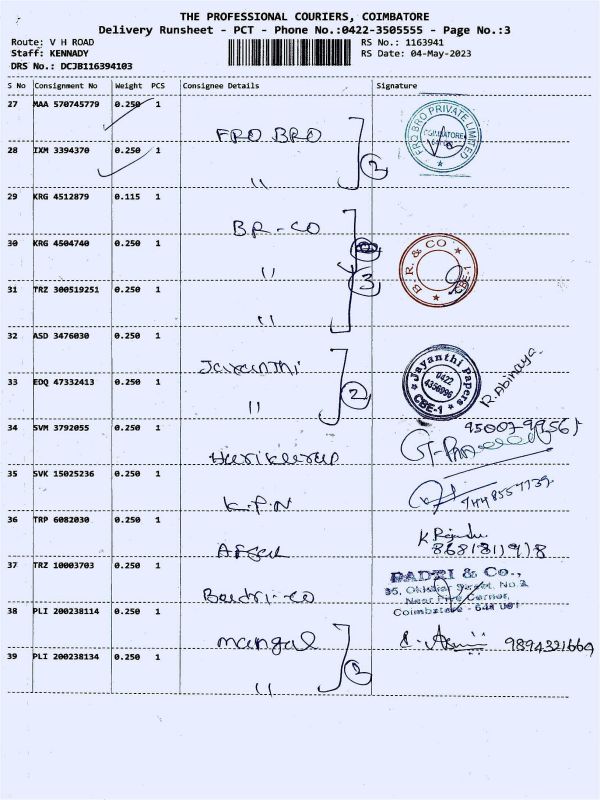 THE PROFESSIONAL COURIERS, COIMBATORE
Delivery Runsheet - PCT - Phone No.:0422-3505555 - Page No.:3
Route: V H ROAD RS No.: 1163941
Staff: KENNADY RS Date: 04-May-2023
DRS No.: DCJBI16394103
S No Consignment No Weight PCS Consignee Details Signature
27 MAA 570745779 0.250 1
FRO BRO
FRO BRO PRIVATE LIMITED
COIMBATORE
28 IXM 3394370 0.250 1
" 2
29 KRG 4512879 0.115 1
BR-CO
30 KRG 4504740 0.250 1
" 3
B.R. & CO
CBE-1
31 TRZ 300519251 0.250 1
"
32 ASD 3476030 0.250 1
Jayanthi
Jayanthi Papers
0422
4356996
CBE-1
R. Abinaya
33 EDQ 47332413 0.250 1
" 2
34 SVM 3792055 0.250 1
35 SVK 15025236 0.250 1
K.P.N
36 TRP 6082030 0.250 1
8681811918
37 TRZ 10003703 0.250 1
Badri-co
BADRI & Co.,
Coimbatore - 641 001
38 PLI 200238114 0.250 1
mangal 9894321664
39 PLI 200238134 0.250 1
"